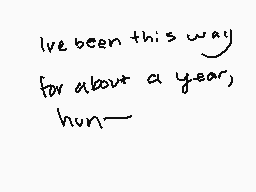 Ive been this way
for about a year,
hun—